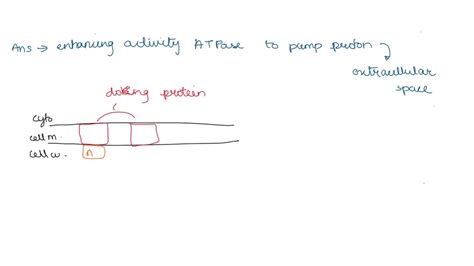 Ans → enhancing activity ATPase to pump proton
extracellular
space
docking protein
cyto
cell m.
cell w.
n